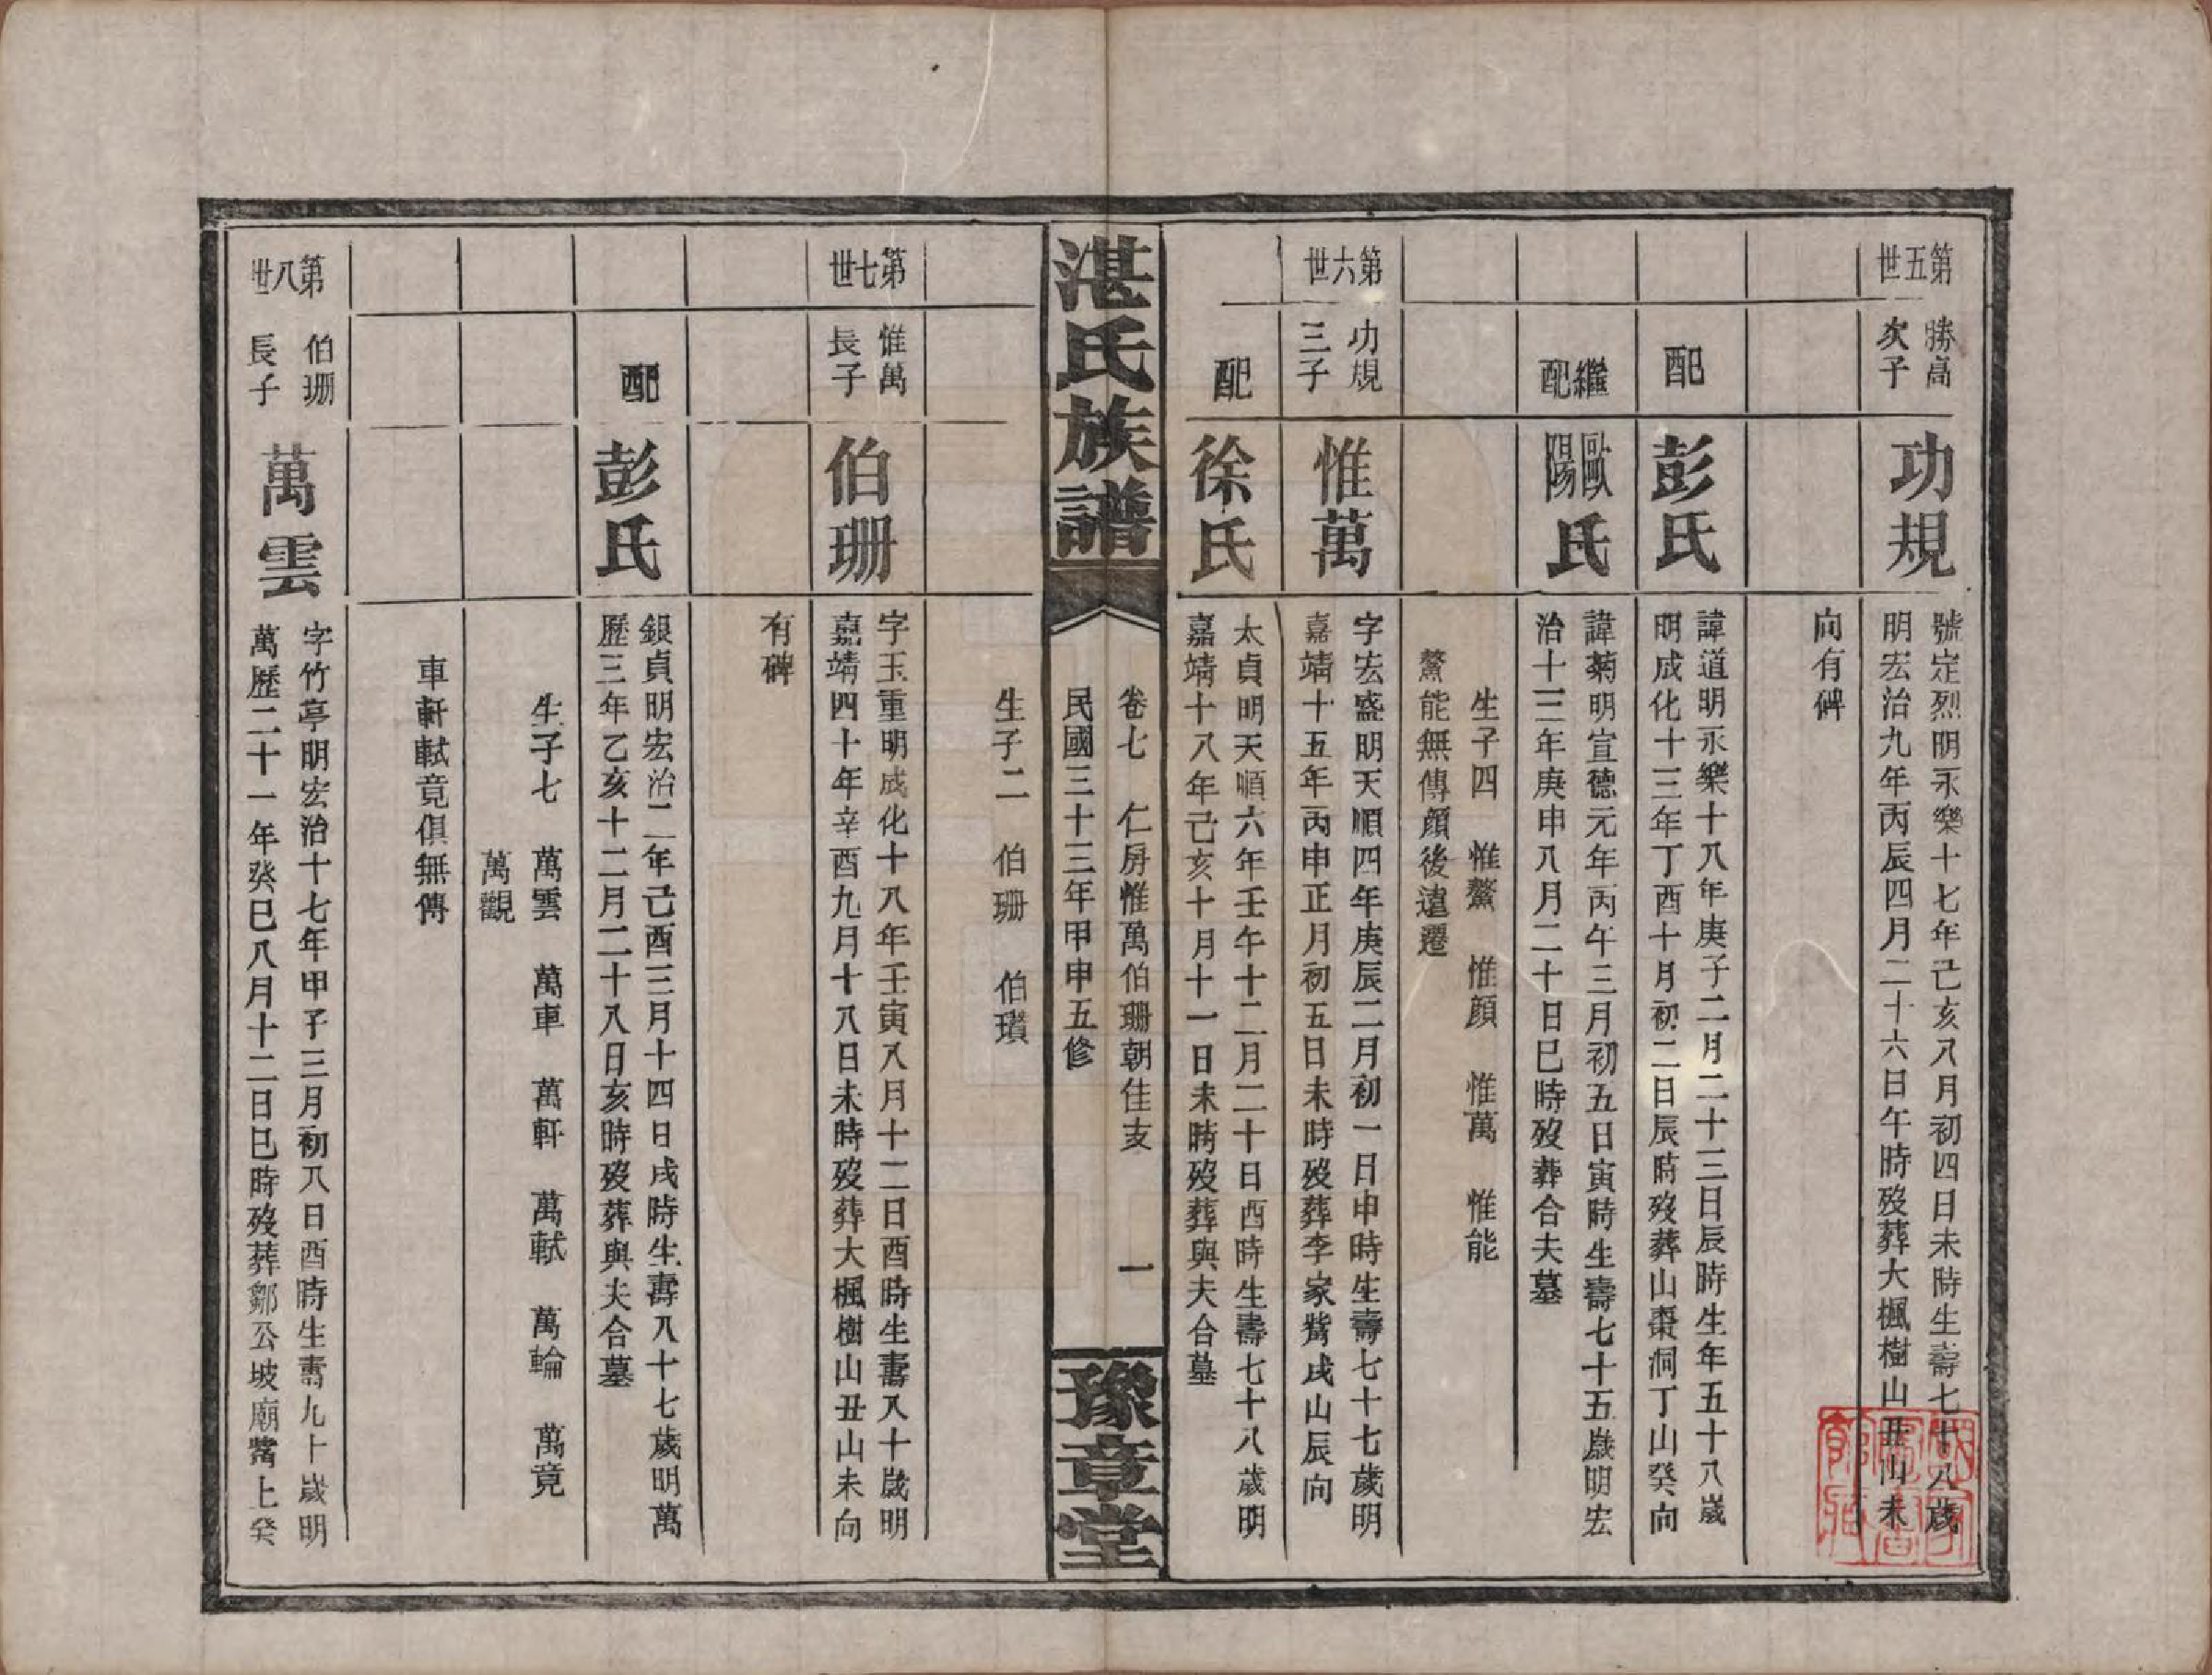 第五世
勝高
次子
功規
號定烈明永樂十七年己亥八月初四日未時生壽七十八歲
明宏治九年丙辰四月二十六日午時歿葬大楓樹山丑山未
向有碑
配
彭氏
諱道明永樂十八年庚子二月二十三日辰時生年五十八歲
明成化十三年丁酉十月初二日辰時歿葬山棗洞丁山癸向
繼配
歐陽氏
諱菊明宣德元年丙午三月初五日寅時生壽七十五歲明宏
治十三年庚申八月二十日巳時歿葬合夫墓
生子四 惟鰲 惟顏 惟萬 惟能
鰲能無傳顏後遠遷
第六世
功規
三子
惟萬
字宏盛明天順四年庚辰二月初一日申時生壽七十七歲明
嘉靖十五年丙申正月初五日未時歿葬李家觜戌山辰向
配
徐氏
太貞明天順六年壬午十二月二十日酉時生壽七十八歲明
嘉靖十八年己亥十月十一日未時歿葬與夫合墓
湛氏族譜
卷七 仁房惟萬伯珊朝佳支 一
民國三十三年甲申五修
豫章堂
生子二 伯珊 伯瓚
第七世
惟萬
長子
伯珊
字玉重明成化十八年壬寅八月十二日酉時生壽八十歲明
嘉靖四十年辛酉九月十八日未時歿葬大楓樹山丑山未向
有碑
配
彭氏
銀貞明宏治二年己酉三月十四日戌時生壽八十七歲明萬
歷三年乙亥十二月二十八日亥時歿葬與夫合墓
生子七 萬雲 萬車 萬軒 萬軾 萬輪 萬竟
萬觀
車軒軾竟俱無傳
第八世
伯珊
長子
萬雲
字竹亭明宏治十七年甲子三月初八日酉時生壽九十歲明
萬歷二十一年癸巳八月十二日巳時歿葬鄒公坡廟觜上癸